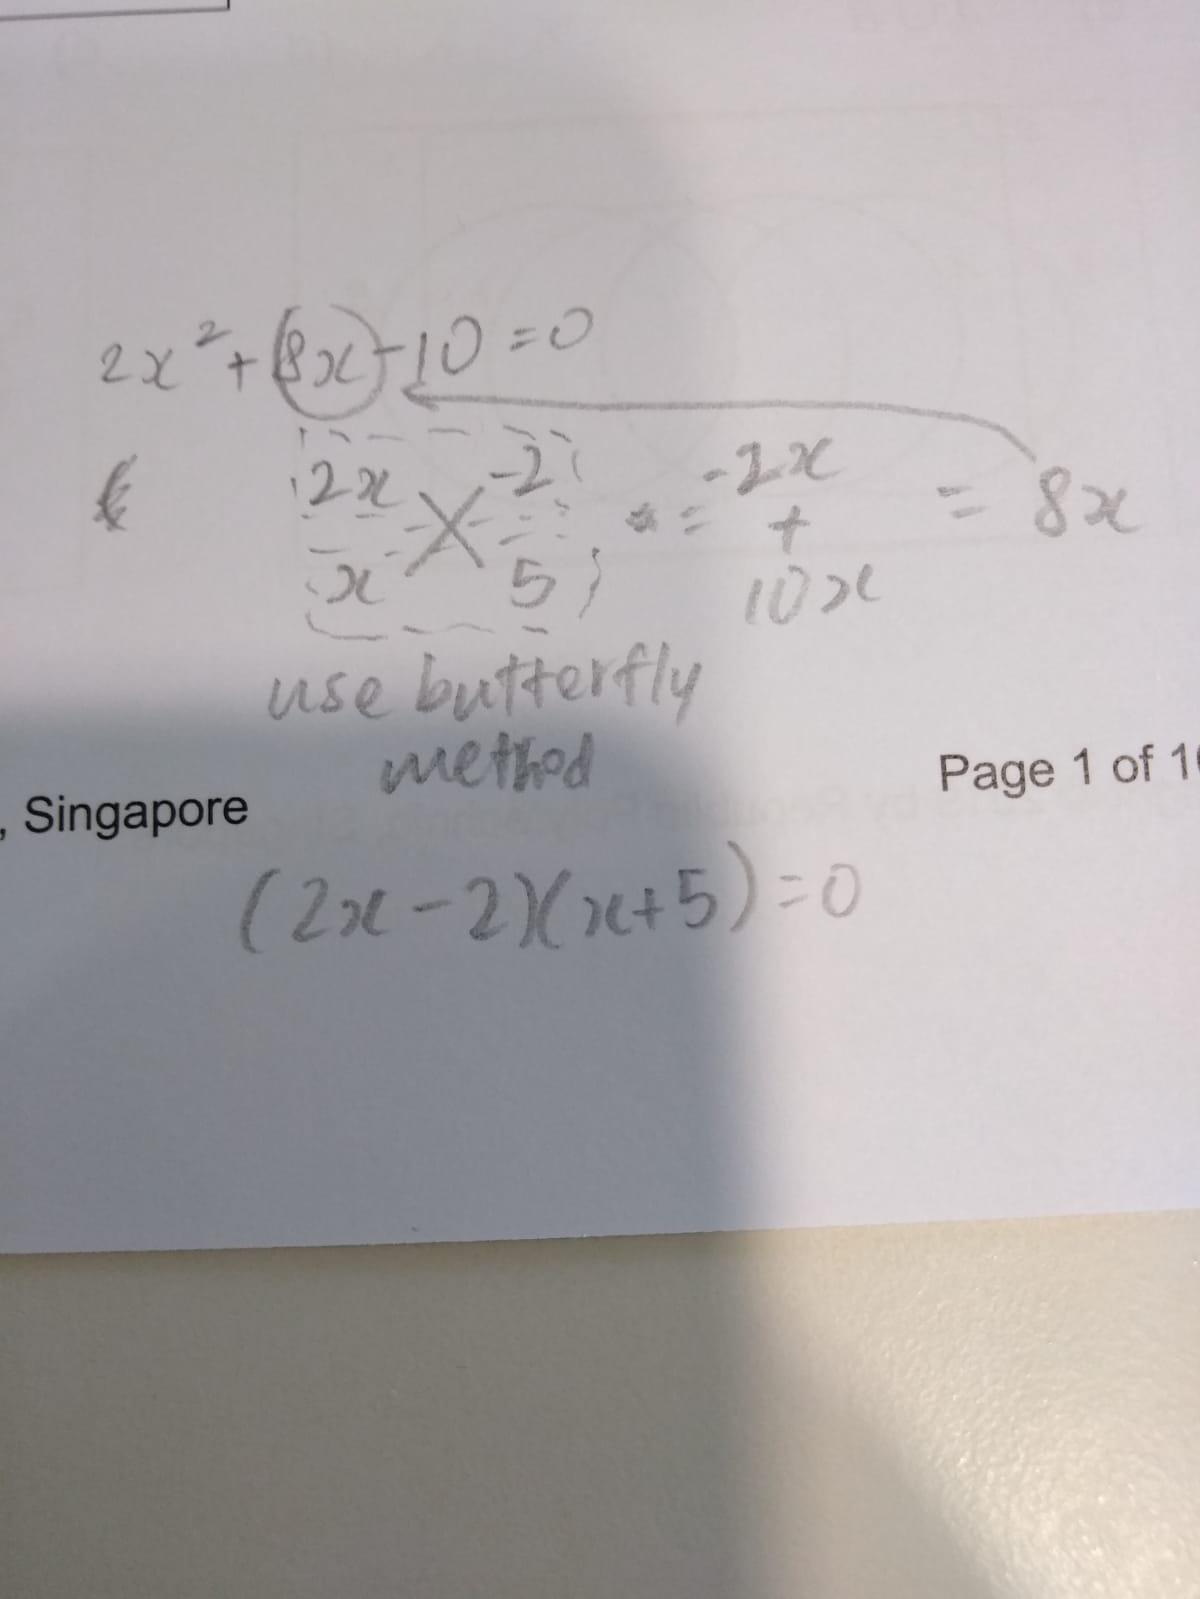 2x² + 8x - 10 = 0
2x -2 = -2x = 8x
+
x 5 10x
use butterfly
method
Page 1 of 1
, Singapore
(2x - 2)(x + 5) = 0